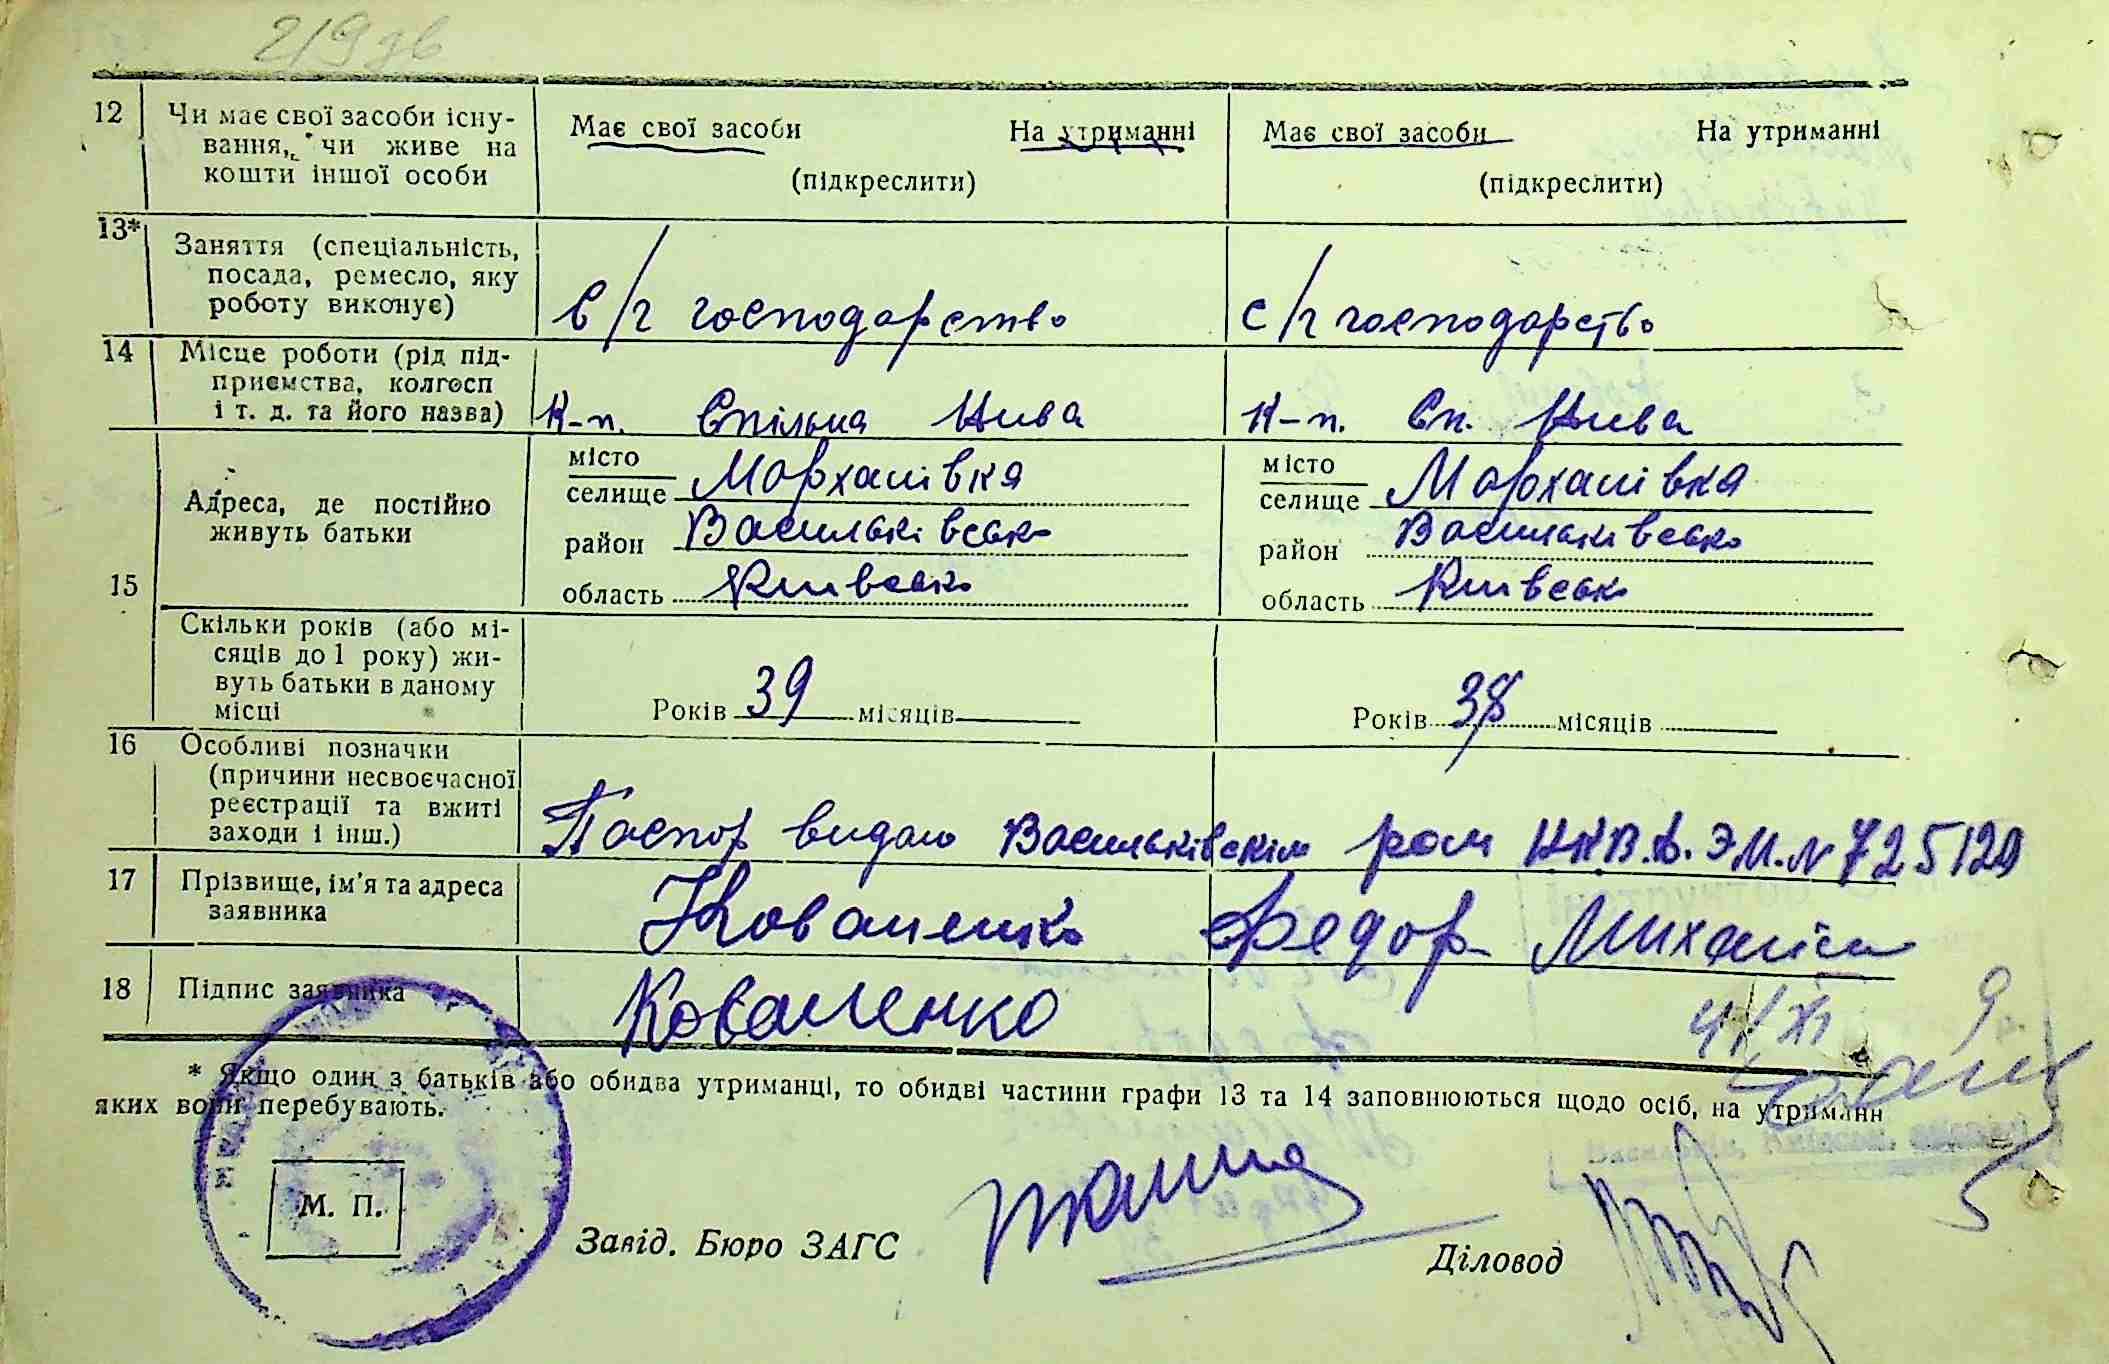 219 зв
12 Чи має свої засоби існу-
вання, чи живе на
кошти іншої особи
Має свої засоби На утриманні
(підкреслити)
Має свої засоби На утриманні
(підкреслити)
13* Заняття (спеціальність,
посада, ремесло, яку
роботу виконує)
с/г господарство
с/г господарство
14 Місце роботи (рід під-
приємства, колгосп
і т. д. та його назва)
к-п. Спільна Нива
к-п. Сп. Нива
15 Адреса, де постійно
живуть батьки
місто
селище Мархалівка
район Васильківсько
область Київсько
місто
селище Мархалівка
район Васильківсько
область Київсько
Скільки років (або мі-
сяців до 1 року) жи-
вуть батьки в даному
місці
Років 39 місяців
Років 38 місяців
16 Особливі позначки
(причини несвоєчасної
реєстрації та вжиті
заходи і інш.)
Паспор видано Васильківскім НКВД. ЭМ. N 725120
17 Прізвище, ім'я та адреса
заявника
Коваленко Федор
18 Підпис заявника
Коваленко
4/XI
* Якщо один з батьків або обидва утриманці, то обидві частини графи 13 та 14 заповнюються щодо осіб, на утриманн
яких вони перебувають.
М. П.
Завід. Бюро ЗАГС
Діловод